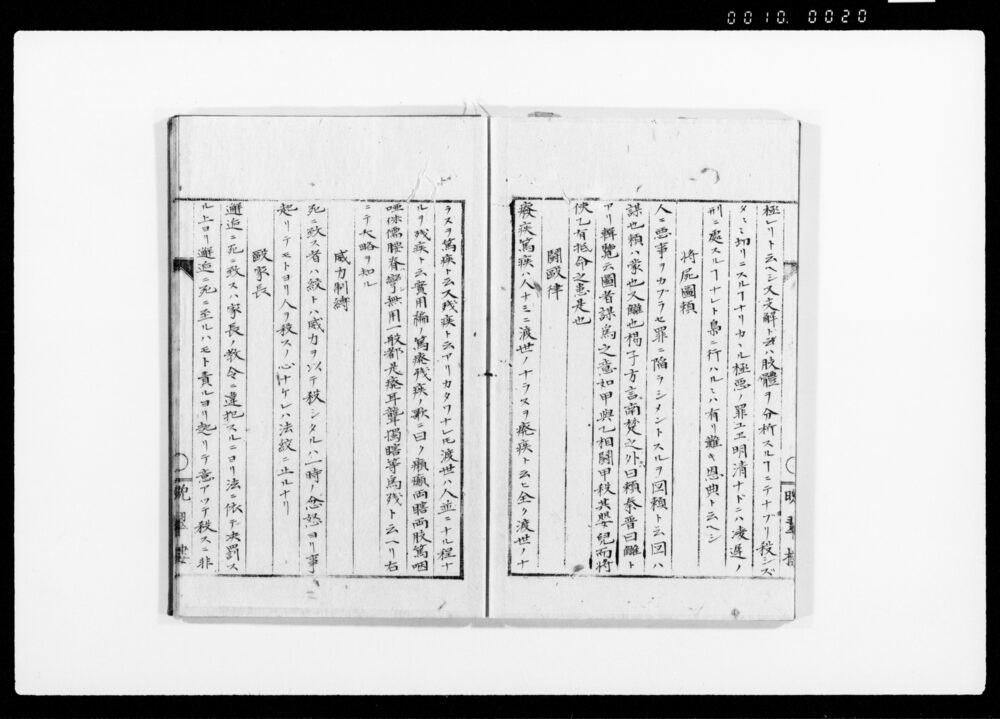 0010. 0020
極レリト云ヘシ又支解ト云ハ肢體ヲ分析スルヿニテナブリ殺シズ
タミ切リニスルヿナリカヽル極悪ノ罪ユヱ明清ナドニハ凌遅ノ
刑ニ處スルヿナレト梟ニ行ハルヽハ有リ難キ恩典ト云ヘシ
將屍圖頼
人ニ悪事ヲカブラセ罪ニ陥ラシメントスルヲ図頼ト云図ハ
謀也頼ハ蒙也又讎也楊子方言南楚之外曰頼秦晋曰讎ト
アリ輯覧云圖者謀為之意如甲與乙相鬪甲秩其嬰兒而將
使乙有抵命之患是也
鬪毆律
癈疾篤疾ハ人ナミニ渡世ノナラヌヲ癈疾ト云ヒ全ク渡世ノナ
ラヌヲ篤疾ト云又残疾ト云アリカタワナレ𪜈渡世ハ人並ニナル程ナ
ルヲ残疾ト云實用編ノ篤癈残疾ノ歌ニ曰ク癩癲両瞎両肢篤咽
唖侏儒腰脊 無用一肢都是癈耳聾獨瞎等為残ト云ヘリ右
ニテ大略ヲ知ル
威力制縛
死ニ致ス者ハ絞ト ハ威力ヲ テ殺シタルハ一時ノ忿怒ヨリ事
起リテモトヨリ人ヲ殺スノ心ナケレハ法絞ニ止ルナリ
毆家長
邂逅ニ死ニ致スハ家長ノ教令ニ違犯スルニヨリ法ニ依テ决罰ス
ル上ヨリ邂逅ニ死ニ至ルハモト責ルヨリ起リテ意アツテ秩スニ非